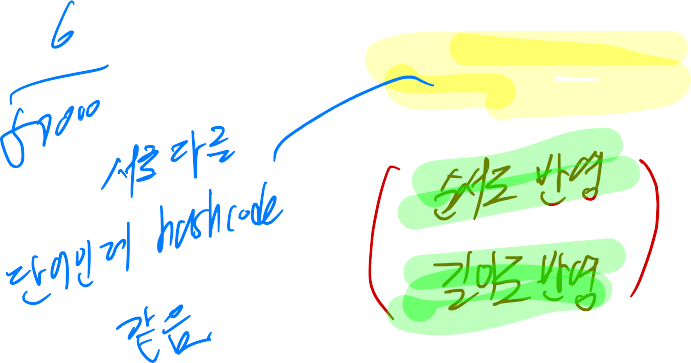 6
50000
서로 다른
단어인데 hashcode
같음
순서로 반영
길이로 반영